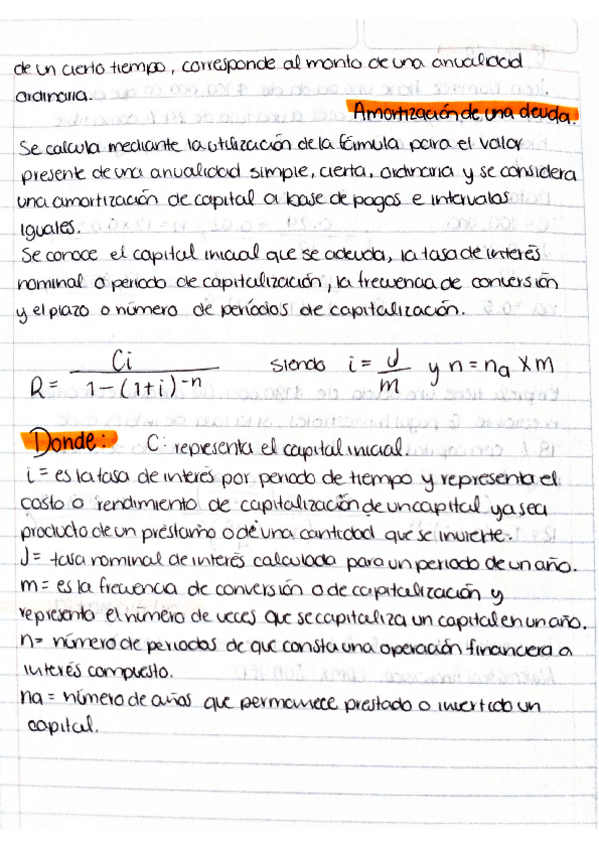 de un cierto tiempo, corresponde al monto de una anualidad
ordinaria.
Amortización de una deuda.
Se calcula mediante la utilización de la fórmula para el valor
presente de una anualidad simple, cierta, ordinaria y se considera
una amortización de capital a base de pagos e intervalos
iguales.
Se conoce el capital inicial que se adeuda, la tasa de interés
nominal o periodo de capitalización, la frecuencia de conversión
y el plazo o número de períodos de capitalización.
R = Ci / 1-(1+i)^-n siendo i = J/m y n = na x m
Donde: C: representa el capital inicial.
i = es la tasa de interés por periodo de tiempo y representa el
costo o rendimiento de capitalización de un capital ya sea
producto de un préstamo o de una cantidad que se invierte.
J = tasa nominal de interés calculada para un periodo de un año.
m = es la frecuencia de conversión o de capitalización y
representa el número de veces que se capitaliza un capital en un año.
n = número de periodos de que consta una operación financiera a
interés compuesto.
na = número de años que permanece prestado o invertido un
capital.